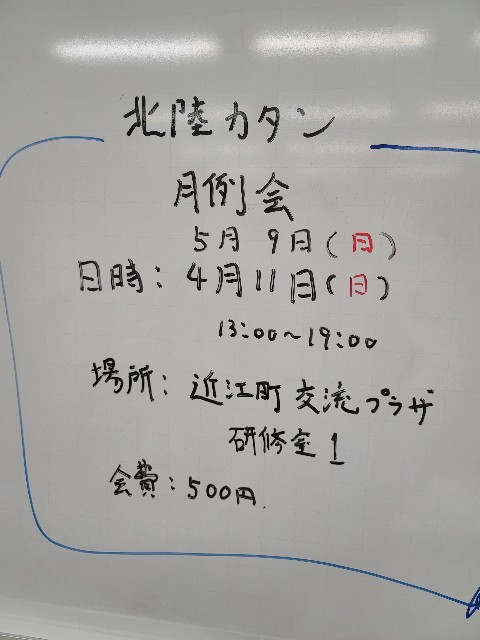 北陸カタン
月例会
5月 9日(日)
日時: 4月11日(日)
13:00~19:00
場所: 近江町交流プラザ
研修室1
会費:500円.